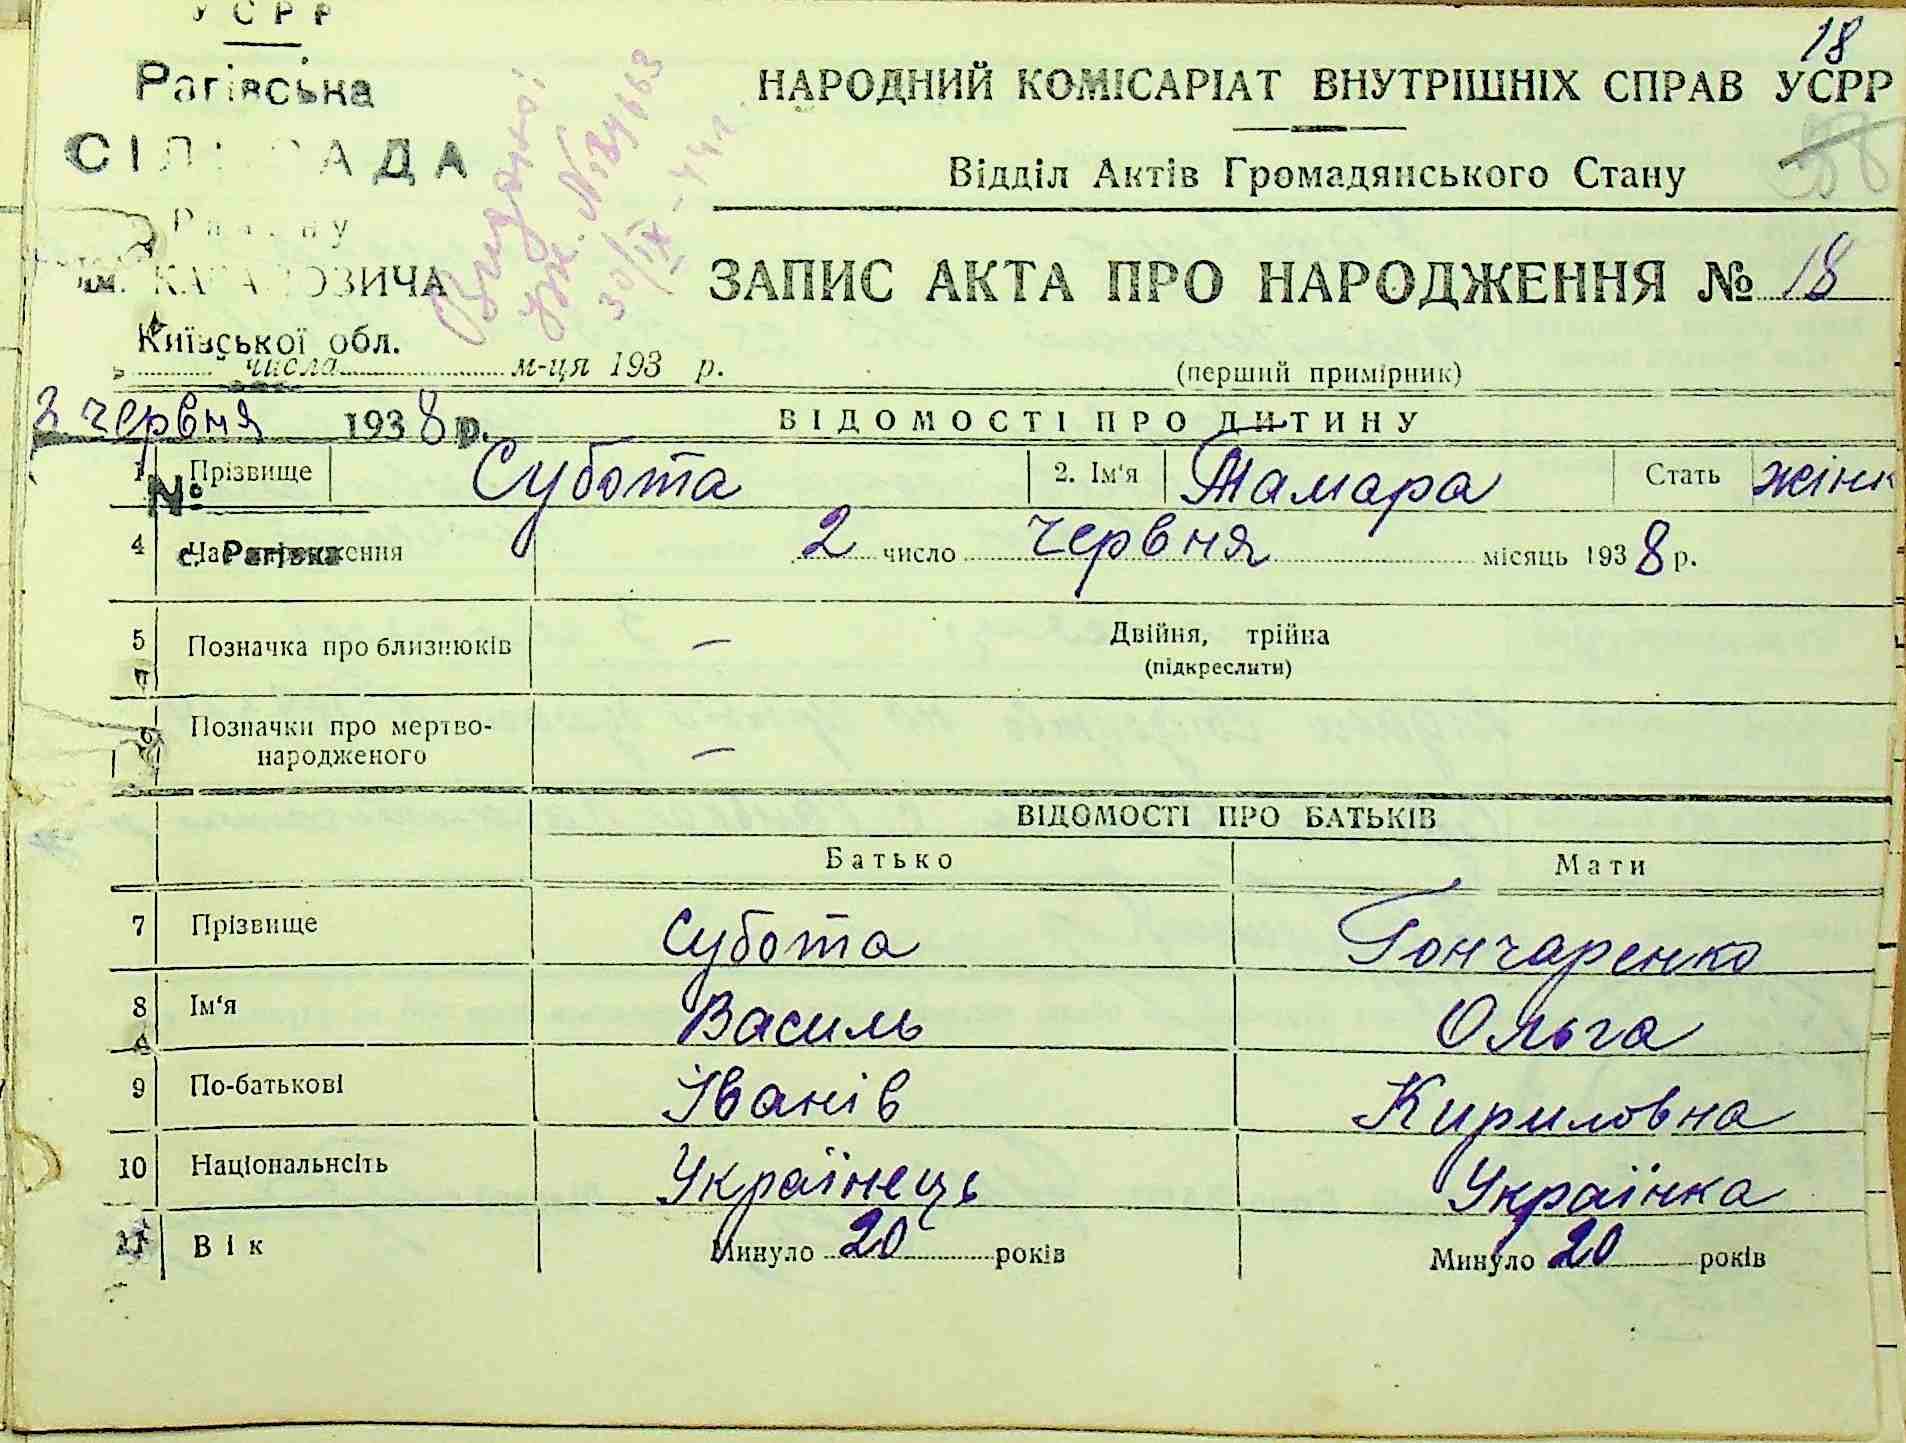 УСРР
Рагівська
СІЛЬРАДА
Району
ім. КАГАНОВИЧА
Київської обл.
числа м-ця 193 р.
2 червня 1938 р.
№
с. Рагівка
18
НАРОДНИЙ КОМІСАРІАТ ВНУТРІШНІХ СПРАВ УСРР
Відділ Актів Громадянського Стану
ЗАПИС АКТА ПРО НАРОДЖЕННЯ № 18
(перший примірник)
ВІДОМОСТІ ПРО ДИТИНУ
1 Прізвище Субота 2. Ім'я Тамара Стать жінк
4 Час народження 2 число червня місяць 1938 р.
5 Позначка про близнюків — Двійня, трійна
(підкреслити)
6 Позначки про мертво-
народженого —
ВІДОМОСТІ ПРО БАТЬКІВ
Батько Мати
7 Прізвище Субота Гончаренко
8 Ім'я Василь Ольга
9 По-батькові Іванів Кириловна
10 Національнсіть Українець Українка
11 Вік Минуло 20 років Минуло 20 років